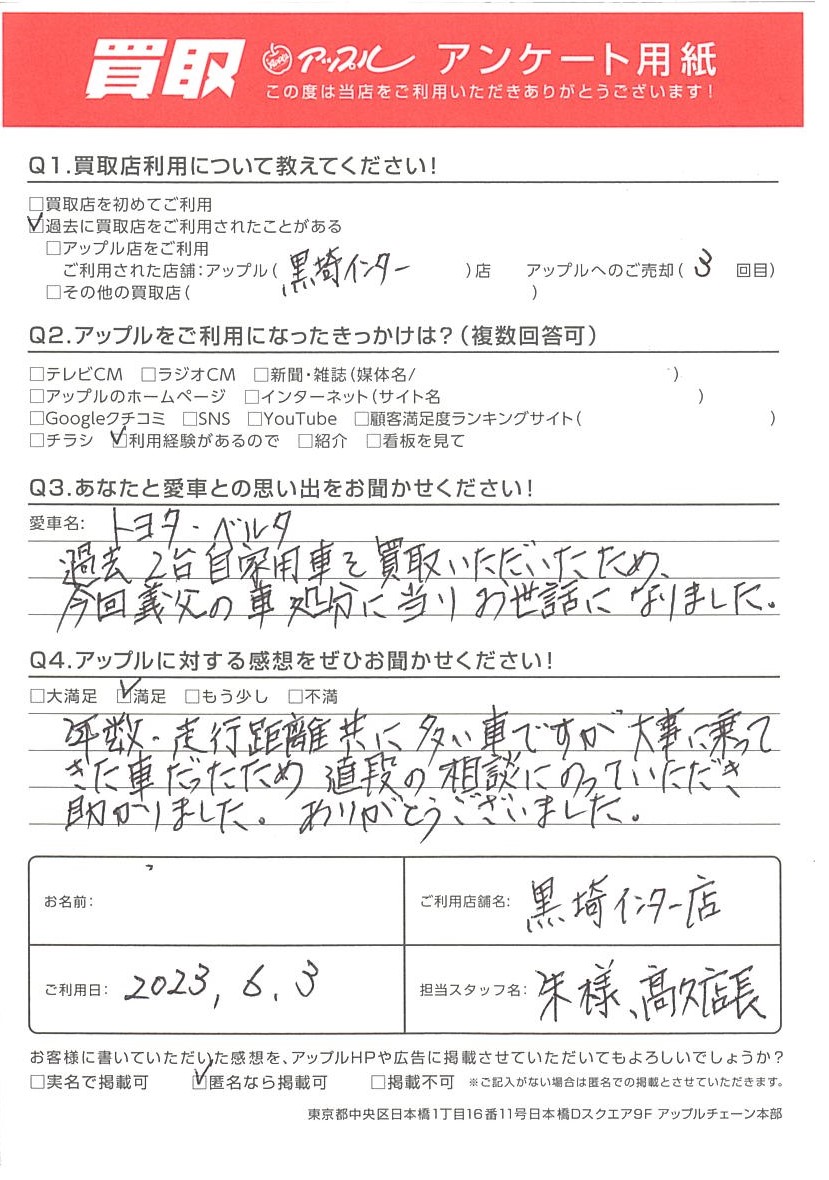 買取 アップル アンケート用紙
この度は当店をご利用いただきありがとうございます!
Q1.買取店利用について教えてください!
□買取店を初めてご利用
☑過去に買取店をご利用されたことがある
□アップル店をご利用
ご利用された店舗:アップル(黒埼インター)店 アップルへのご売却(3回目)
□その他の買取店( )
Q2.アップルをご利用になったきっかけは?(複数回答可)
□テレビCM □ラジオCM □新聞・雑誌(媒体名/ )
□アップルのホームページ □インターネット(サイト名 )
□Googleクチコミ □SNS □YouTube □顧客満足度ランキングサイト( )
□チラシ ☑利用経験があるので □紹介 □看板を見て
Q3.あなたと愛車との思い出をお聞かせください!
愛車名: トヨタ・ベルタ
過去2台自家用車を買取いただいたため、
今回義父の車処分に当りお世話になりました。
Q4.アップルに対する感想をぜひお聞かせください!
□大満足 ☑満足 □もう少し □不満
年数・走行距離共に多い車ですが大事に乗って
きた車だったため 値段の相談にのっていただき
助かりました。ありがとうございました。
お名前:
ご利用店舗名: 黒埼インター店
ご利用日: 2023,6.3
担当スタッフ名: 朱様、髙久店長
お客様に書いていただいた感想を、アップルHPや広告に掲載させていただいてもよろしいでしょうか?
□実名で掲載可 ☑匿名なら掲載可 □掲載不可 ※ご記入がない場合は匿名での掲載とさせていただきます。
東京都中央区日本橋1丁目16番11号日本橋Dスクエア9F アップルチェーン本部